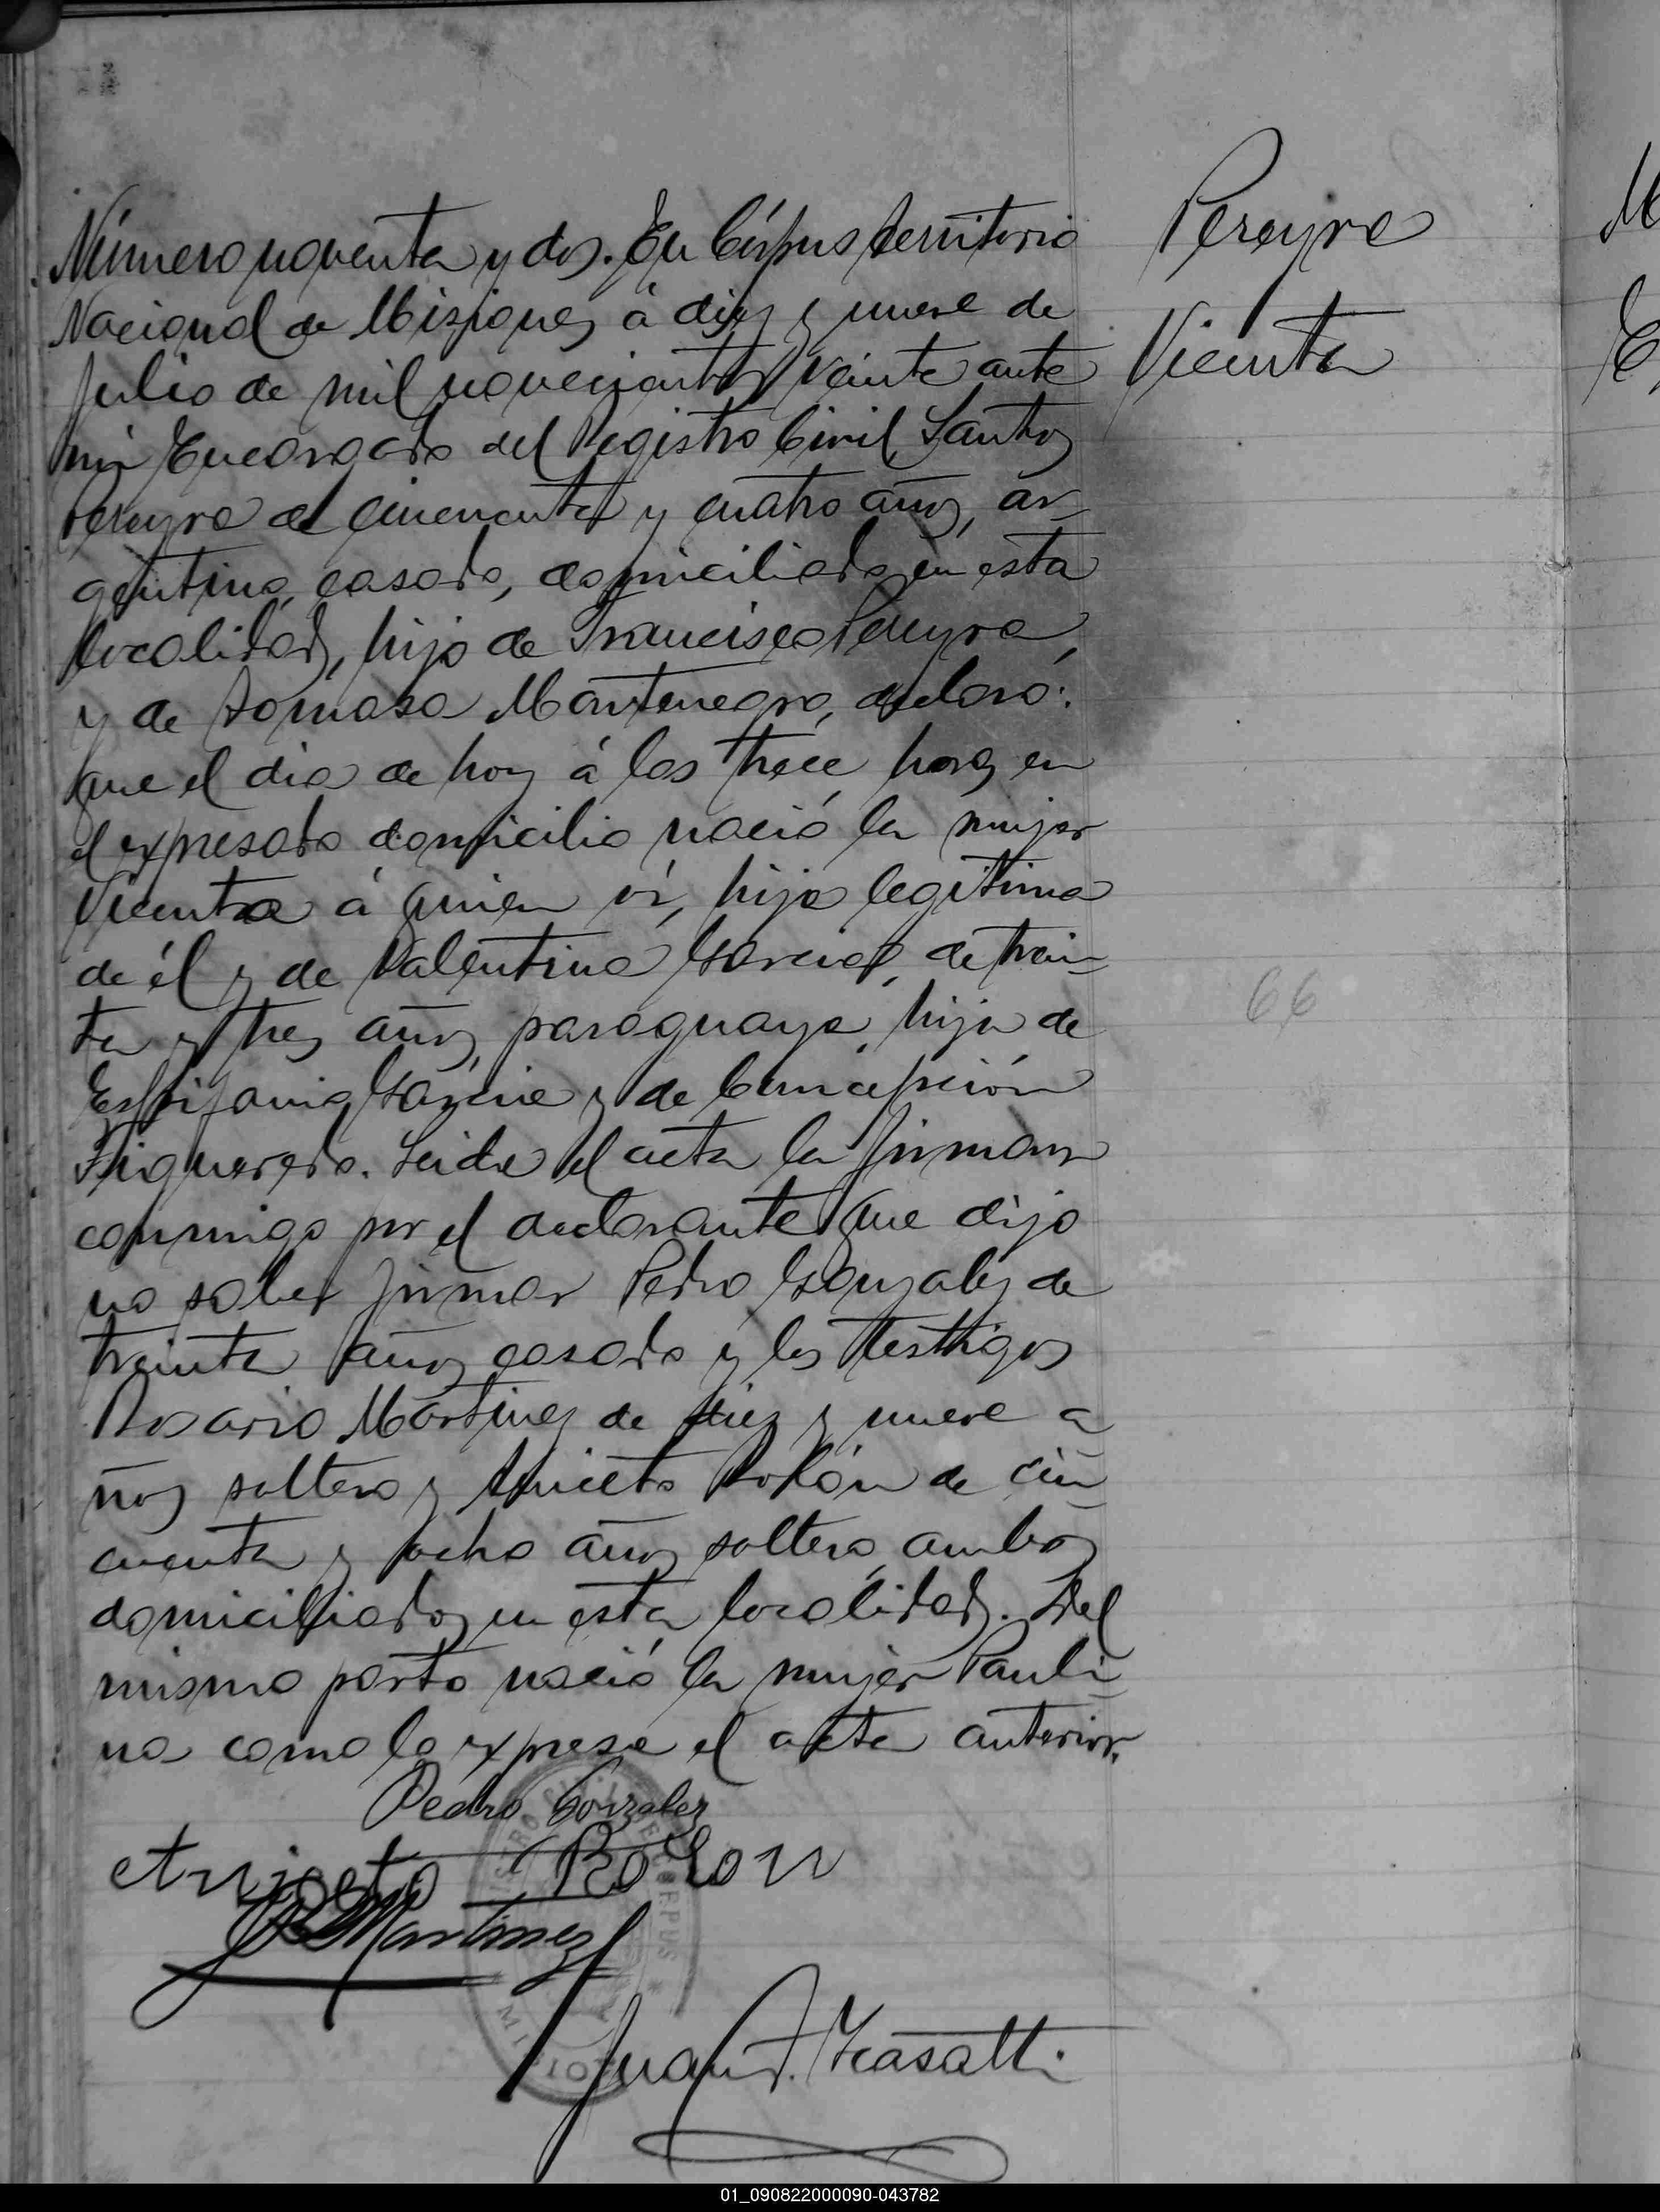 Número noventa y dos. En Córpus territorio
Nacional de Misiones, á diez y nueve de
Julio de mil novecientos veinte ante
mi Encargado del Registro Civil, Santos
Pereyra de cincuenta y cuatro años, ar-
gentino, casado, domiciliado en esta
localidad, hijo de Francisco Pereyra,
y de Tomasa Montenegro, declaró:
que el dia de hoy á las trece horas en
el expresado domicilio nació la mujer
Vicenta á quien ví, hija legítima
de él y de Valentina Garcia, de trein-
ta y tres años, paraguaya, hija de
Garcia y de Concepción
Figueredo. Leida el acta la firman
conmigo por el declarante que dijo
no saber firmar Pedro Gonzalez de
treinta años casado y los testigos
Rosario Martinez de diez y nueve a-
ños soltero y Aniceto Rolón de cin-
cuenta y ocho años soltero, ambos
domiciliados en esta localidad. Del
mismo parto nació la mujer Pauli-
na como lo expresa el acta anterior.
Pedro Gonzalez
Aniceto Rolon
R Martinez
Pereyra
Vicenta
66
01_090822000090-043782